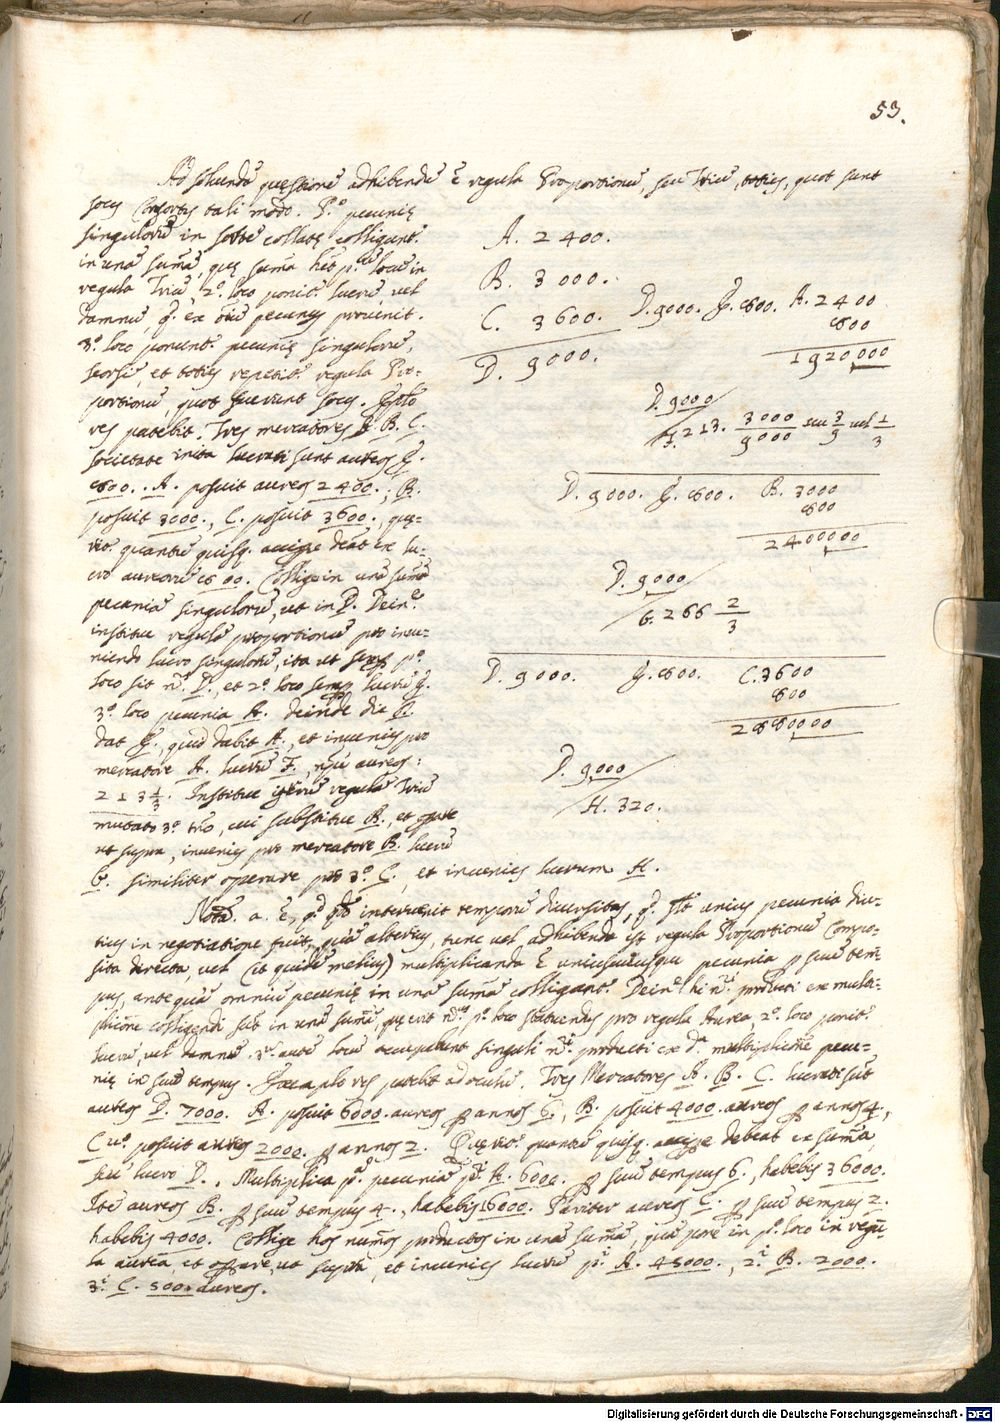 53.
Ad solvendū quęstionē adhibenda ē regula Proportionū, seu Triū, toties, quot sunt
socij Consortes tali modo. P.º pecunię
singulorū in sorte collatę colligant.
in unā sumā, quę suma hēt p.ᵘ locū in
regula Triū, 2.º loco ponit. lucrū, vel
damnū, q. ex oiū pecunijs provenit.
3.º loco ponunt. pecunię singulorū,
seorsū, et toties repetit. regula Pro-
portionū, quot fuerunt socij. Explo
res patebit. Tres mercatores A. B. C.
societate inita lucrati sunt aureos G.
800. A. posuit aureos 2400., B.
posuit 3000., C. posuit 3600., quę-
rit. quantū quisq. accipe debeat ex lu-
cro aureorū 800. Collige in unā sumā
pecuniā singulorū, ut in D. Dein.
institue regulā proportionū pro inve-
niendo lucro singulorū, ita ut semp p.º
loco sit n.º D., et 2.º loco semp lucrū G.
3.º loco pecunia A. deinde dic D.
dat G. quid dabit A., et invenies pro
mercatore A. lucrū F., nēpe aureos:
213 1/3. Institue iterū regulā Triū
mutato 3.º tn̄o, cui substitue B., et opare
ut supra, invenies pro mercatore B. lucrū
G. similiter operare pro 3.º C., et invenies lucrum H.
A. 2400.
B. 3000.
C. 3600.
D. 9000.
D. 9000. G. 800. A. 2400
800
1920000
D. 9000
F. 213. 3000/9000 seu 3/9 vel 1/3
D. 9000. G. 800. B. 3000
800
2400000
D. 9000
G. 266 2/3
D. 9000. G. 800. C. 3600
800
2880000
D. 9000
H. 320.
Nota. a. ē, q.ᵈ qdo intervenit temporū diversitas, q. slt unius pecunia diu-
tius in negotiatione fuit, quā alterius, tunc vel adhibenda est regula Proportionū Compo-
sita directa, vel (et quidē melius) multiplicanda ē uniuscuiusque pecunia p suū tem-
pus, antequā omniū pecunię in unā sumā colligant. Dein. hi n.ⁱ producti ex multi-
plicōne colligendi sūt in unā sumā, quę erit n.ᵘˢ p.º loco statuendus pro regula Aurea, 2.º loco ponit.
lucrū, vel damnū. 3.ᵘ autē locū occupabunt singuli n.ⁱ producti ex d.ᵃ multiplicōne pecu-
nię in suū tempus. Exemplo res patebit ad oculū. Tres Mercatores A. B. C. lucrati sūt
aureos D. 7000. A. posuit 6000. aureos p annos 6., B. posuit 4000. aureos p annos 4.,
C.ᵘˢ posuit aureos 2000. p annos 2. Quęrit. quantū quisq. accipe debeat ex sumā,
seu lucro D.. Multiplica p.ᵃ pecuniā p.ⁱ A. 6000. p suū tempus 6., habebis 36000.
Itē aureos B. p suū tempus 4., habebis 16000. Pariter aureos C. p suū tempus 2.
habebis 4000. Collige hos numos productos in unā sumā, quā pone in p.º loco in regu-
la aurea, et opare, ut supra, et invenies lucrū p.ⁱ A. 45000., 2.ⁱ B. 2000.
3.ⁱ C. 500. aureos.
Digitalisierung gefördert durch die Deutsche Forschungsgemeinschaft - DFG